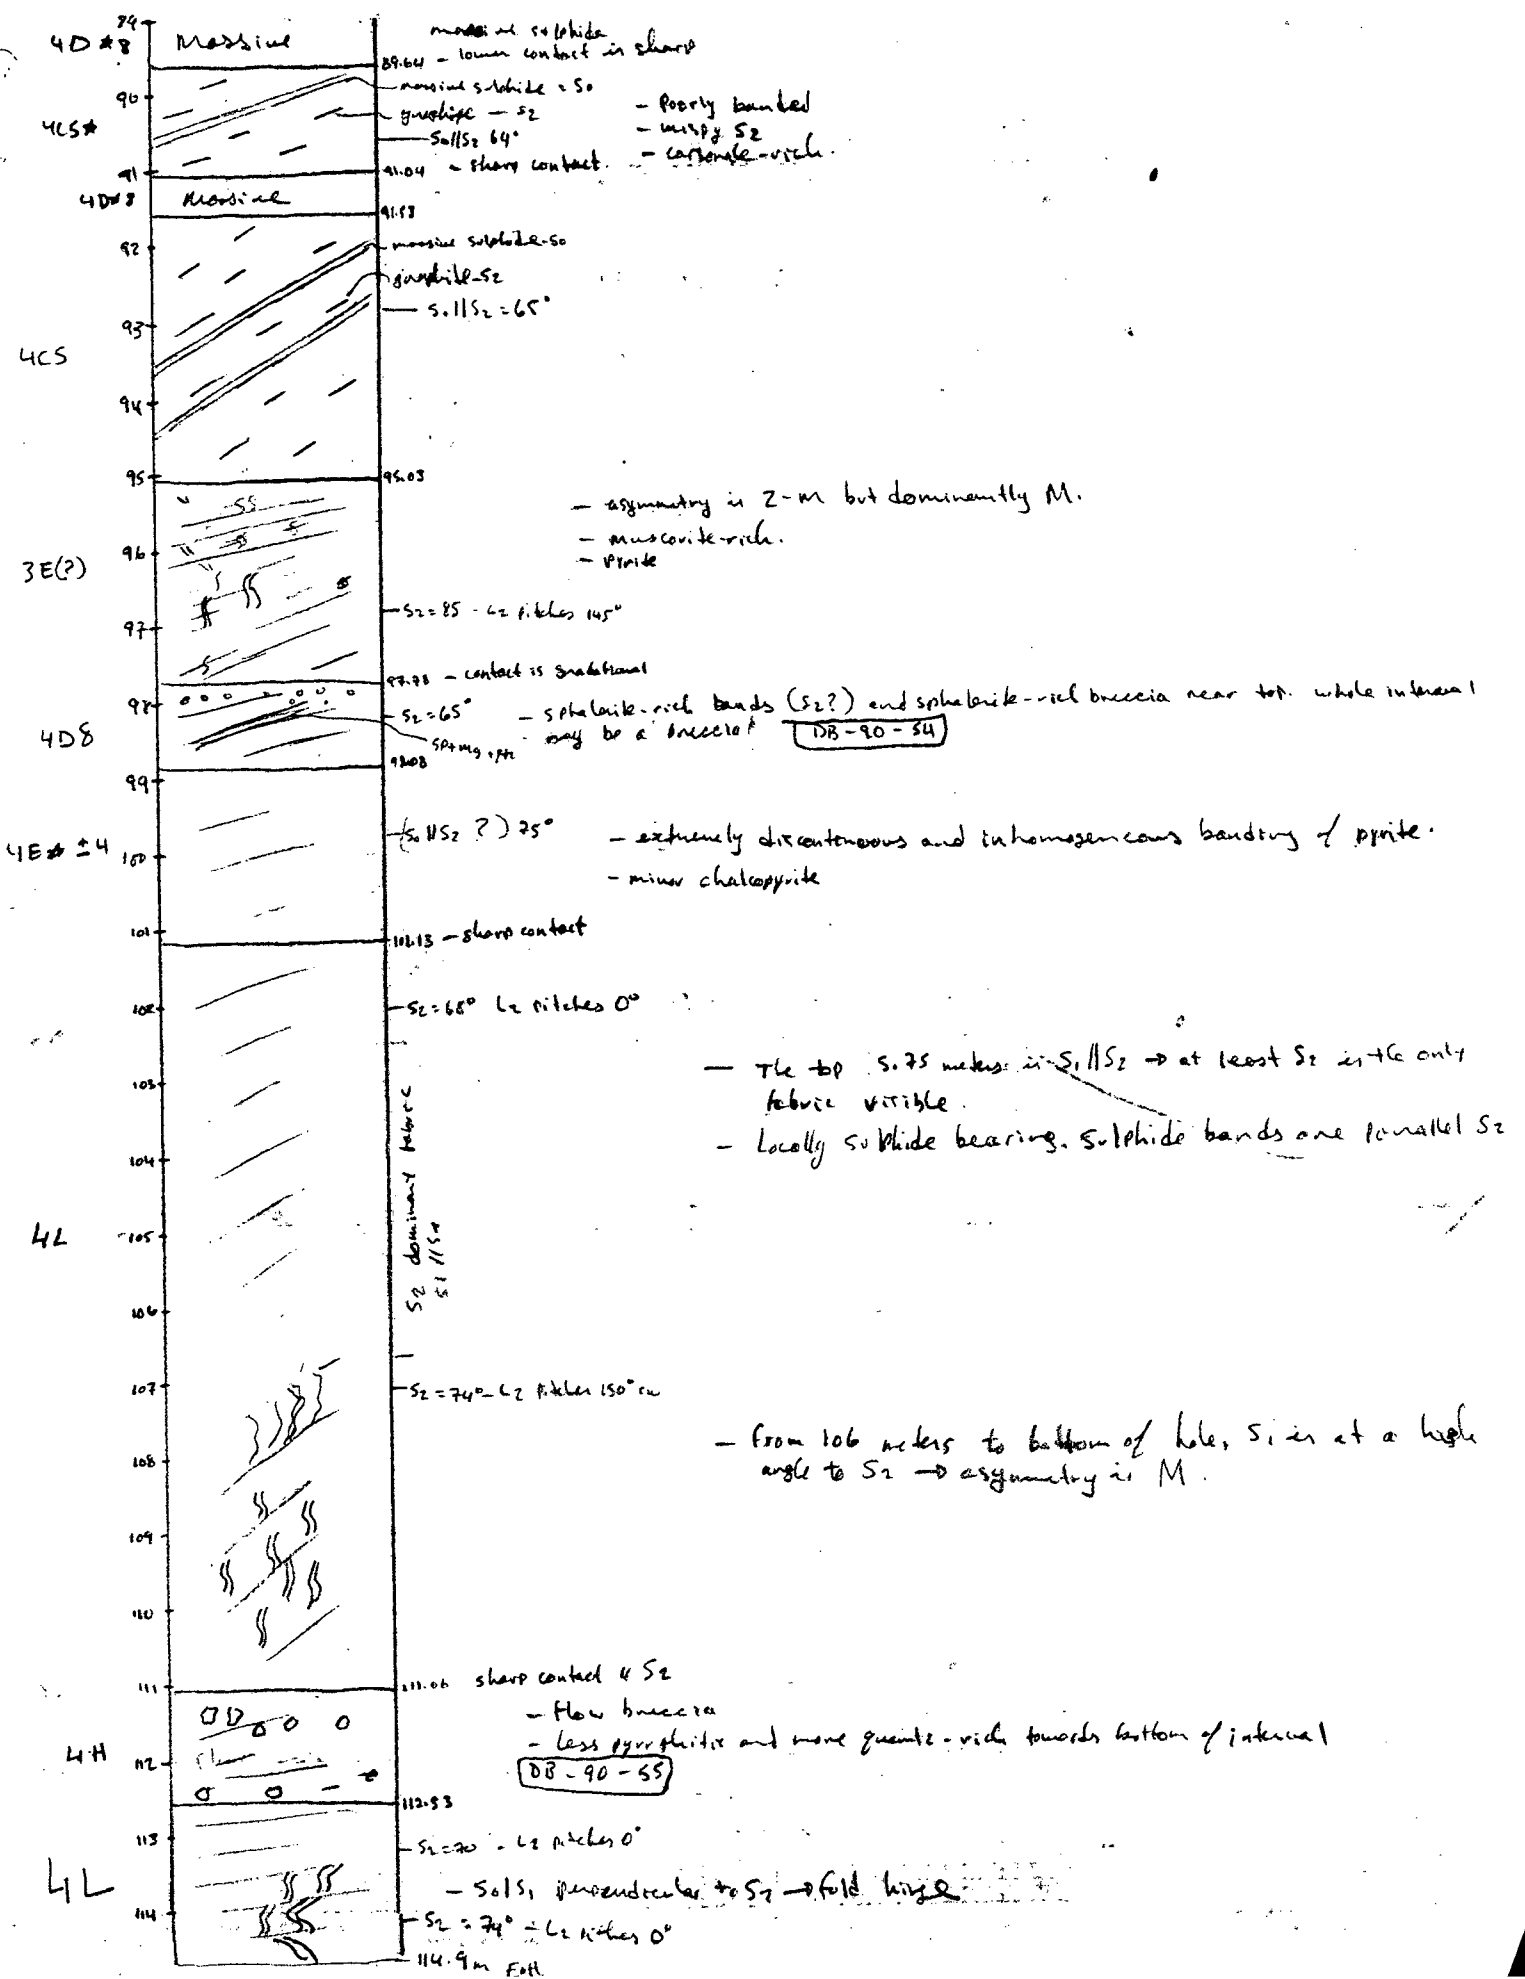 89
4D*8 Massive massive sulphide
89.64 - lower contact is sharp
massive sulphide = S0
90
graphite - S2 - Poorly banded
4C5* - wispy S2
S0//S2 64° - carbonate-rich.
91 91.04 - sharp contact.
4D*8 Massive
91.53
92 massive sulphide-S0
graphite-S2
S0//S2 = 65°
93
4C5
94
95 95.03
- asymmetry is Z-M but dominantly M.
- muscovite-rich.
96 - pyrite
3E(?)
S2=85 - L2 pitches 145°
97
97.73 - contact is gradational
98 S2=65° - sphalerite-rich bands (S2?) and sphalerite-rich breccia near top. whole interval
4D8 may be a breccia! DB-90-54
sp+mg+po
99
4E* ±4 (S0//S2 ?) 75° - extremely discontinuous and inhomogeneous banding of pyrite.
100 - minor chalcopyrite
101 101.13 - sharp contact
102 S2=68° L2 pitches 0°
- The top 5.75 meters is S1//S2 → at least S2 is the only
103 fabric visible.
- Locally sulphide bearing. Sulphide bands are parallel S2
104
S2 dominant fabric
S1//S2
4L 105
106
107 S2=74° - L2 pitches 150° cw
- From 106 meters to bottom of hole, S1 is at a high
108 angle to S2 → asymmetry is M.
109
110
111 111.06 sharp contact // S2
- flow breccia
4H - Less pyrrhotitic and more quartz-rich towards bottom of interval
112 DB-90-55
112.53
113 S2=70 - L2 pitches 0°
4L - S0/S1 perpendicular to S2 → fold hinge
114 S2 = 74° - L2 pitches 0°
114.9m EOH